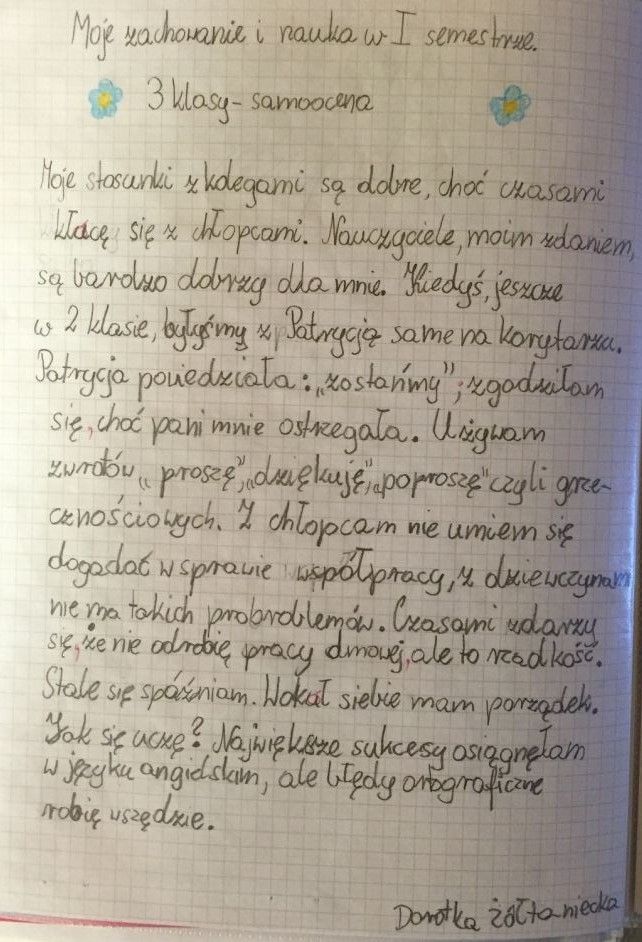 Moje zachowanie i nauka w I semestrze.
3 klasy - samoocena
Moje stosunki z kolegami są dobre, choć czasami
kłacę się z chłopcami. Nauczyciele, moim zdaniem,
są bardzo dobrzy dla mnie. Kiedyś, jeszcze
w 2 klasie, byłyśmy z Patrycją same na korytarzu.
Patrycja powiedziała: „zostańmy"; zgodziłam
się, choć pani mnie ostrzegała. Używam
zwrotów „proszę", „dziękuję", „poproszę" czyli grze-
cznościowych. Z chłopcam nie umiem się
dogadać w sprawie współpracy, z dziewczynam
nie ma takich probroblemów. Czasami zdarzy
się, że nie odrobię pracy dmowej, ale to rzadkość.
Stale się spóźniam. Wokał siebie mam porządek.
Jak się uczę? Największe sukcesy osiągnęłam
w języku angielskim, ale błędy ortograficzne
robię wszędzie.
Dorotka Żółtaniecka